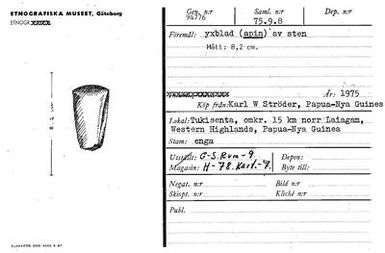 ETNOGRAFISKA MUSEET, Göteborg
Gen. n:r 94776
Saml. n:r 75.9.8
Dep. n:r
Föremål: yxblad (apin) av sten
Mått: 8,2 cm.
År: 1975
Köp från: Karl W Ströder, Papua-Nya Guinea
Lokal: Tukisenta, omkr. 15 km norr Laiagam,
Western Highlands, Papua-Nya Guinea
Stam: enga
Utställt: G-S.Rum-9.
Depon:
Magasin: H-78.Kart.-7.
Byte till:
Negat. n:r
Bild n:r
Skiopt. n:r
Kliché n:r
Publ.